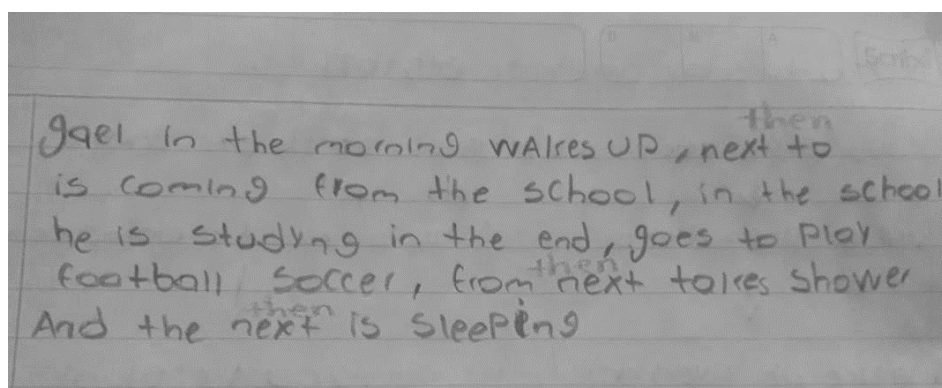 then
gael in the morning wakes up, next to
is coming from the school, in the school
he is studyng in the end, goes to play
football soccer, from next takes shower
then
And the next is sleeping
then